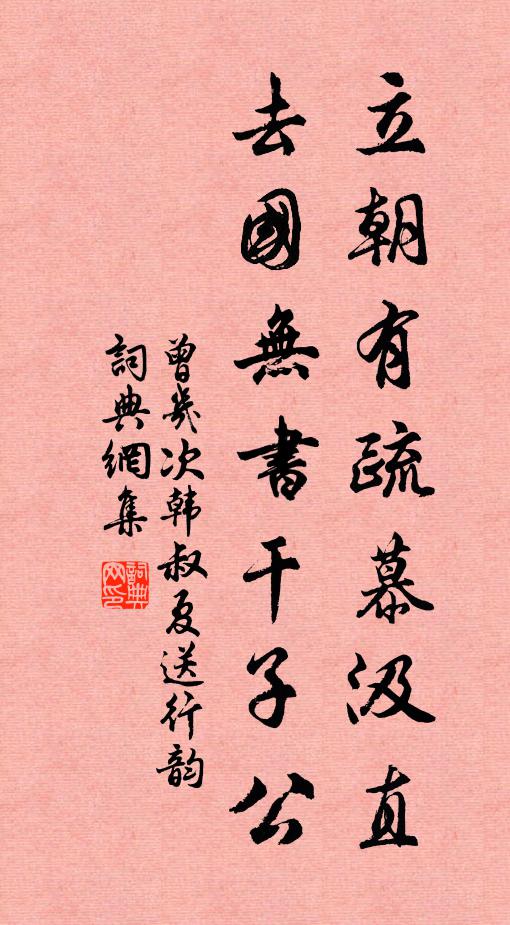 立朝有疏慕汲直
去國無書干子公
曾幾次韩叔夏送行韵
詞典網集
詞典網印